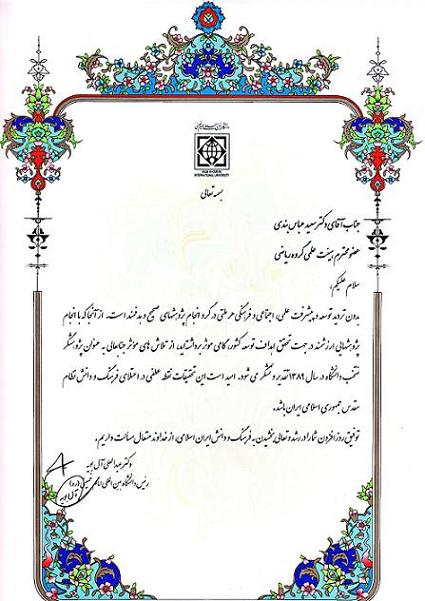 IMAM KHOMEINI
INTERNATIONAL UNIVERSITY
بسمه تعالی
جناب آقای دکتر سعید عباس بندی
عضو محترم هیئت علمی گروه ریاضی
سلام علیکم،
بدون تردید توسعه و پیشرفت علمی، اجتماعی و فرهنگی هر ملتی در گرو انجام پژوهشهای صحیح و هدفمند است. از آنجا که با انجام
پژوهشهایی ارزشمند در جهت تحقق اهداف توسعه کشور، گامی موثر برداشته‌اید، از تلاش های مؤثر جنابعالی به عنوان پژوهشگر
منتخب دانشگاه در سال ۱۳۸۹ تقدیر و تشکر می شود. امید است این تحقیقات نقطه عطفی در اعتلای فرهنگ و دانش نظام
مقدس جمهوری اسلامی ایران باشد.
توفیق روز افزون شما را در رشد و تعالی بخشیدن به فرهنگ و دانش ایران اسلامی، از خداوند متعال مسألت داریم.
دکتر عبدالعلی آل بویه
رئیس دانشگاه بین المللی امام خمینی (ره)